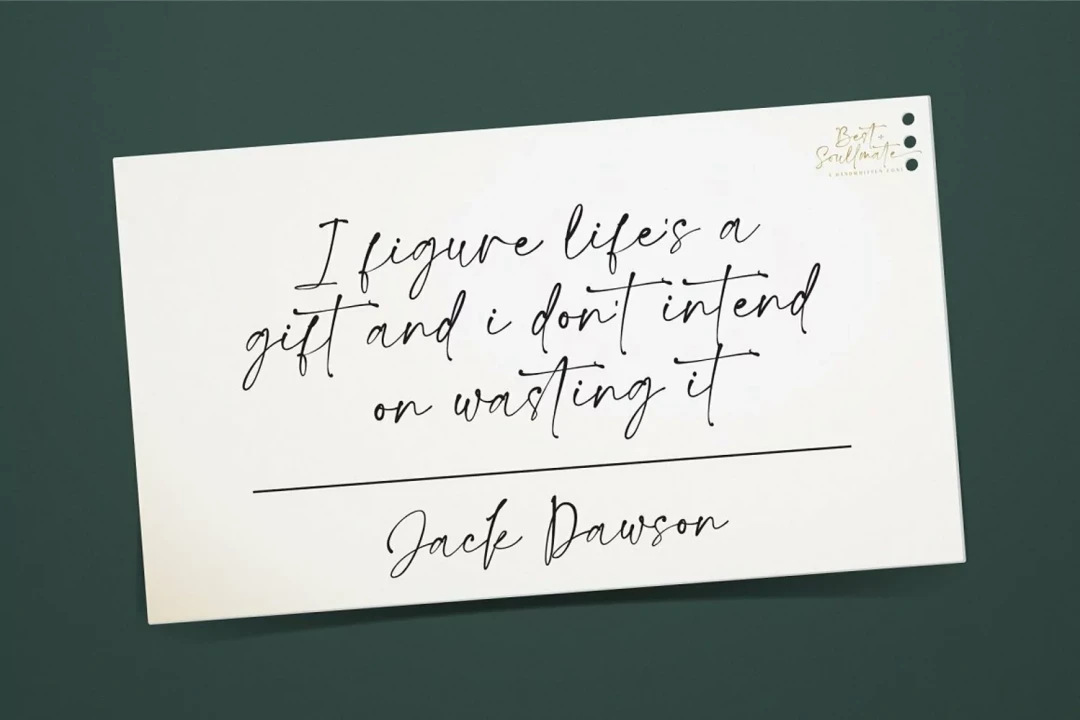 Best
Soullmate
A HANDWRITTEN FONT
I figure life's a
gift and i don't intend
on wasting it
Jack Dawson